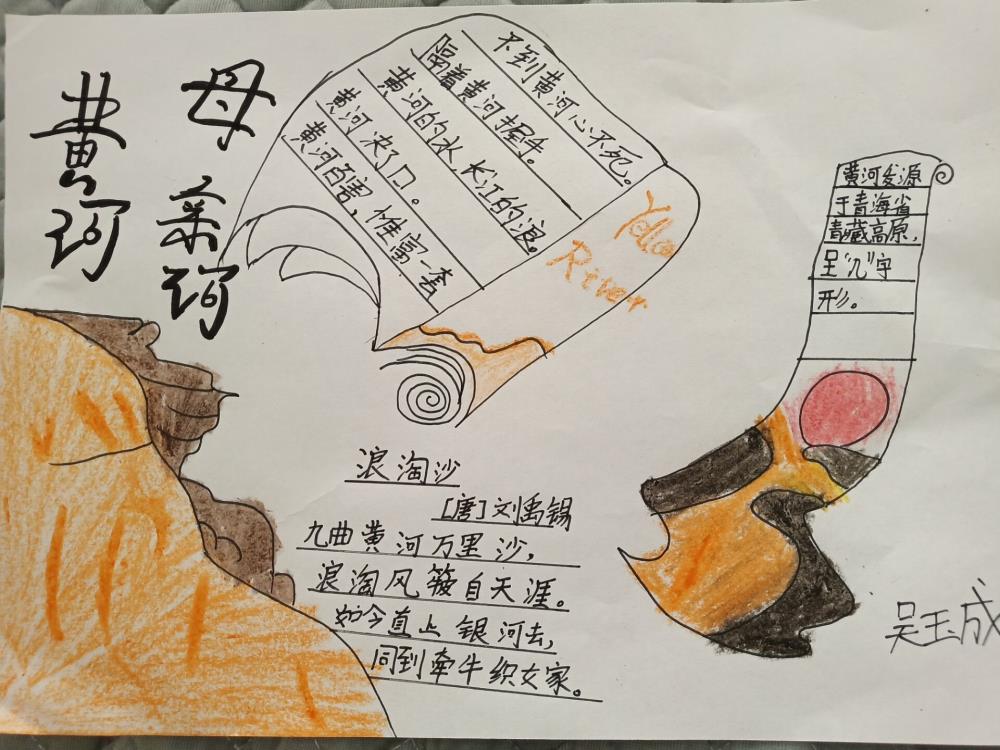 母亲河
黄河
不到黄河心不死。
隔着黄河握手。
黄河的水,长江的浪。
黄河决了口。
黄河百害,惟富一套
Yellow
River
黄河发源
于青海省
青藏高原,
呈“几”字
形。
浪淘沙
[唐]刘禹锡
九曲黄河万里沙,
浪淘风簸自天涯。
如今直上银河去,
同到牵牛织女家。
吴玉成